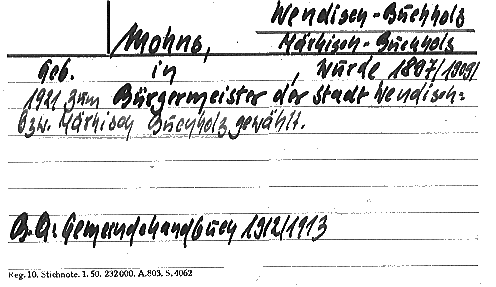 Wendisch-Buchholz
Mohns, Märkisch-Buchholz
Geb. in , wurde 1897/1909/
1921 zum Bürgermeister der Stadt Wendisch=
bzw. Märkisch Buchholz gewählt.
B.A: Gemeindehandbuch 1912/1913
Reg. 10. Stichnote. 1. 50. 232000. A.803. S.4062